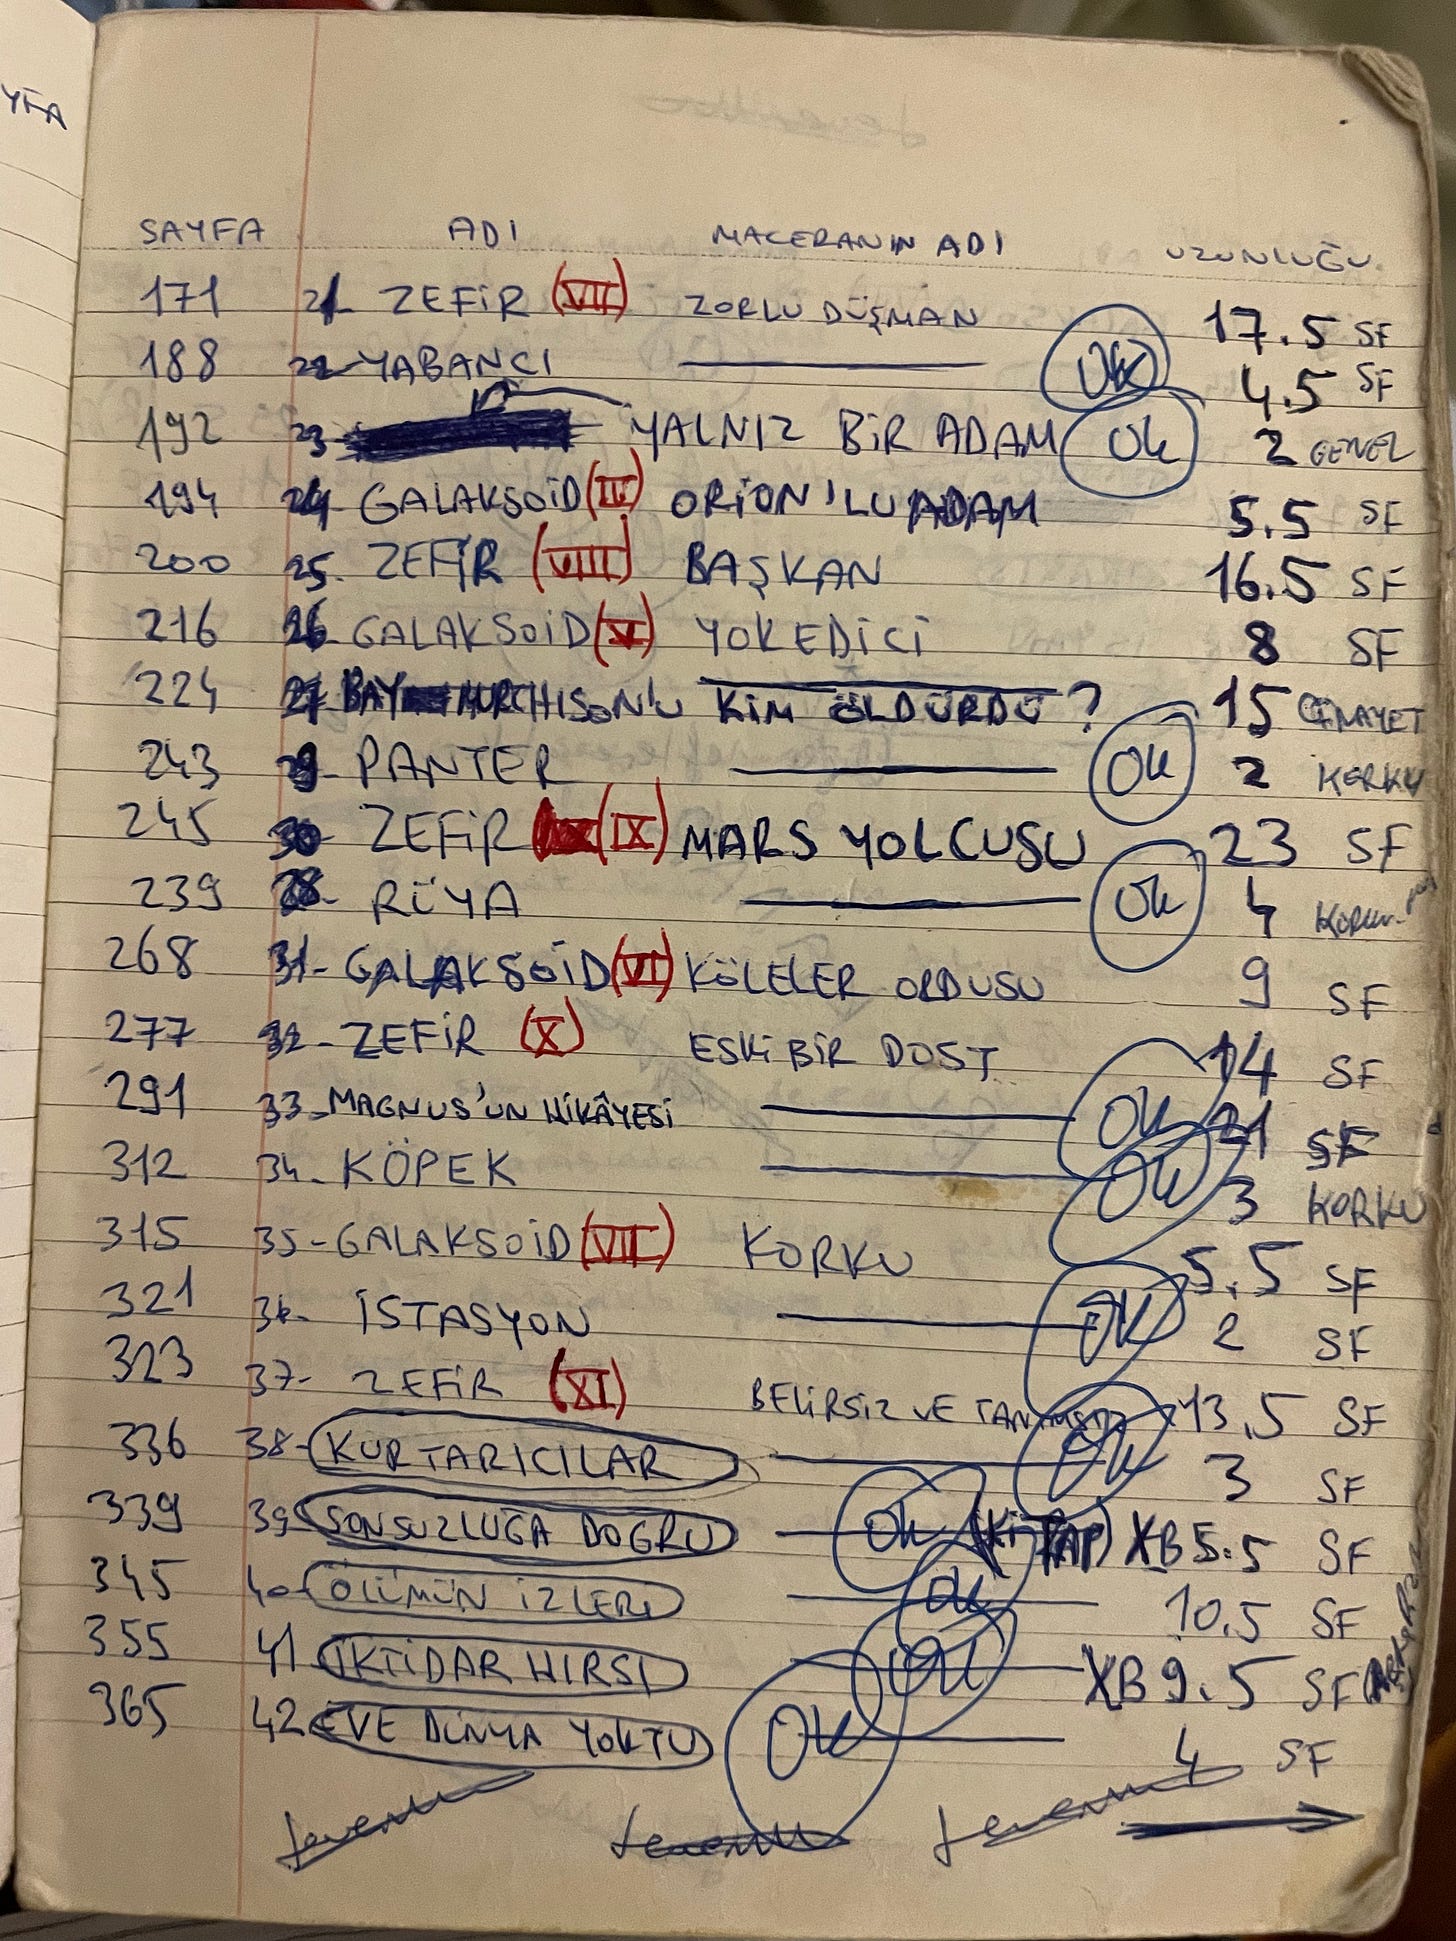 YFA
SAYFA ADI MACERANIN ADI UZUNLUĞU
171 21- ZEFİR (VII) ZORLU DÜŞMAN 17.5 SF
188 22- YABANCI Ok 4.5 SF
192 23- YALNIZ BİR ADAM Ok 2 GENEL
194 24- GALAKSOİD (IV) ORİON'LU ADAM 5.5 SF
200 25- ZEFİR (VIII) BAŞKAN 16.5 SF
216 26- GALAKSOİD (V) YOKEDİCİ 8 SF
224 27- BAY MURCHISON'U KİM ÖLDÜRDÜ? 15 CİNAYET
243 29- PANTER Ok 2 KORKU
245 30- ZEFİR (IX) MARS YOLCUSU 23 SF
239 28- RÜYA Ok 4 KORKU-
268 31- GALAKSOİD (VI) KÖLELER ORDUSU 9 SF
277 32- ZEFİR (X) ESKİ BİR DOST 14 SF
291 33- MAGNUS'UN HİKÂYESİ Ok 21 SF
312 34- KÖPEK Ok 3 KORKU
315 35- GALAKSOİD (VII) KORKU 5.5 SF
321 36- İSTASYON Ok 2 SF
323 37- ZEFİR (XI) BELİRSİZ VE TANIMSIZ 13.5 SF
336 38- KURTARICILAR Ok 3 SF
339 39- SONSUZLUĞA DOĞRU Ok (KİTAP) XB 5.5 SF
345 40- ÖLÜMÜN İZLERİ Ok 10.5 SF
355 41 İKTİDAR HIRSI Ok XB 9.5 SF
365 42 EVE DÜNYA YOKTU Ok 4 SF